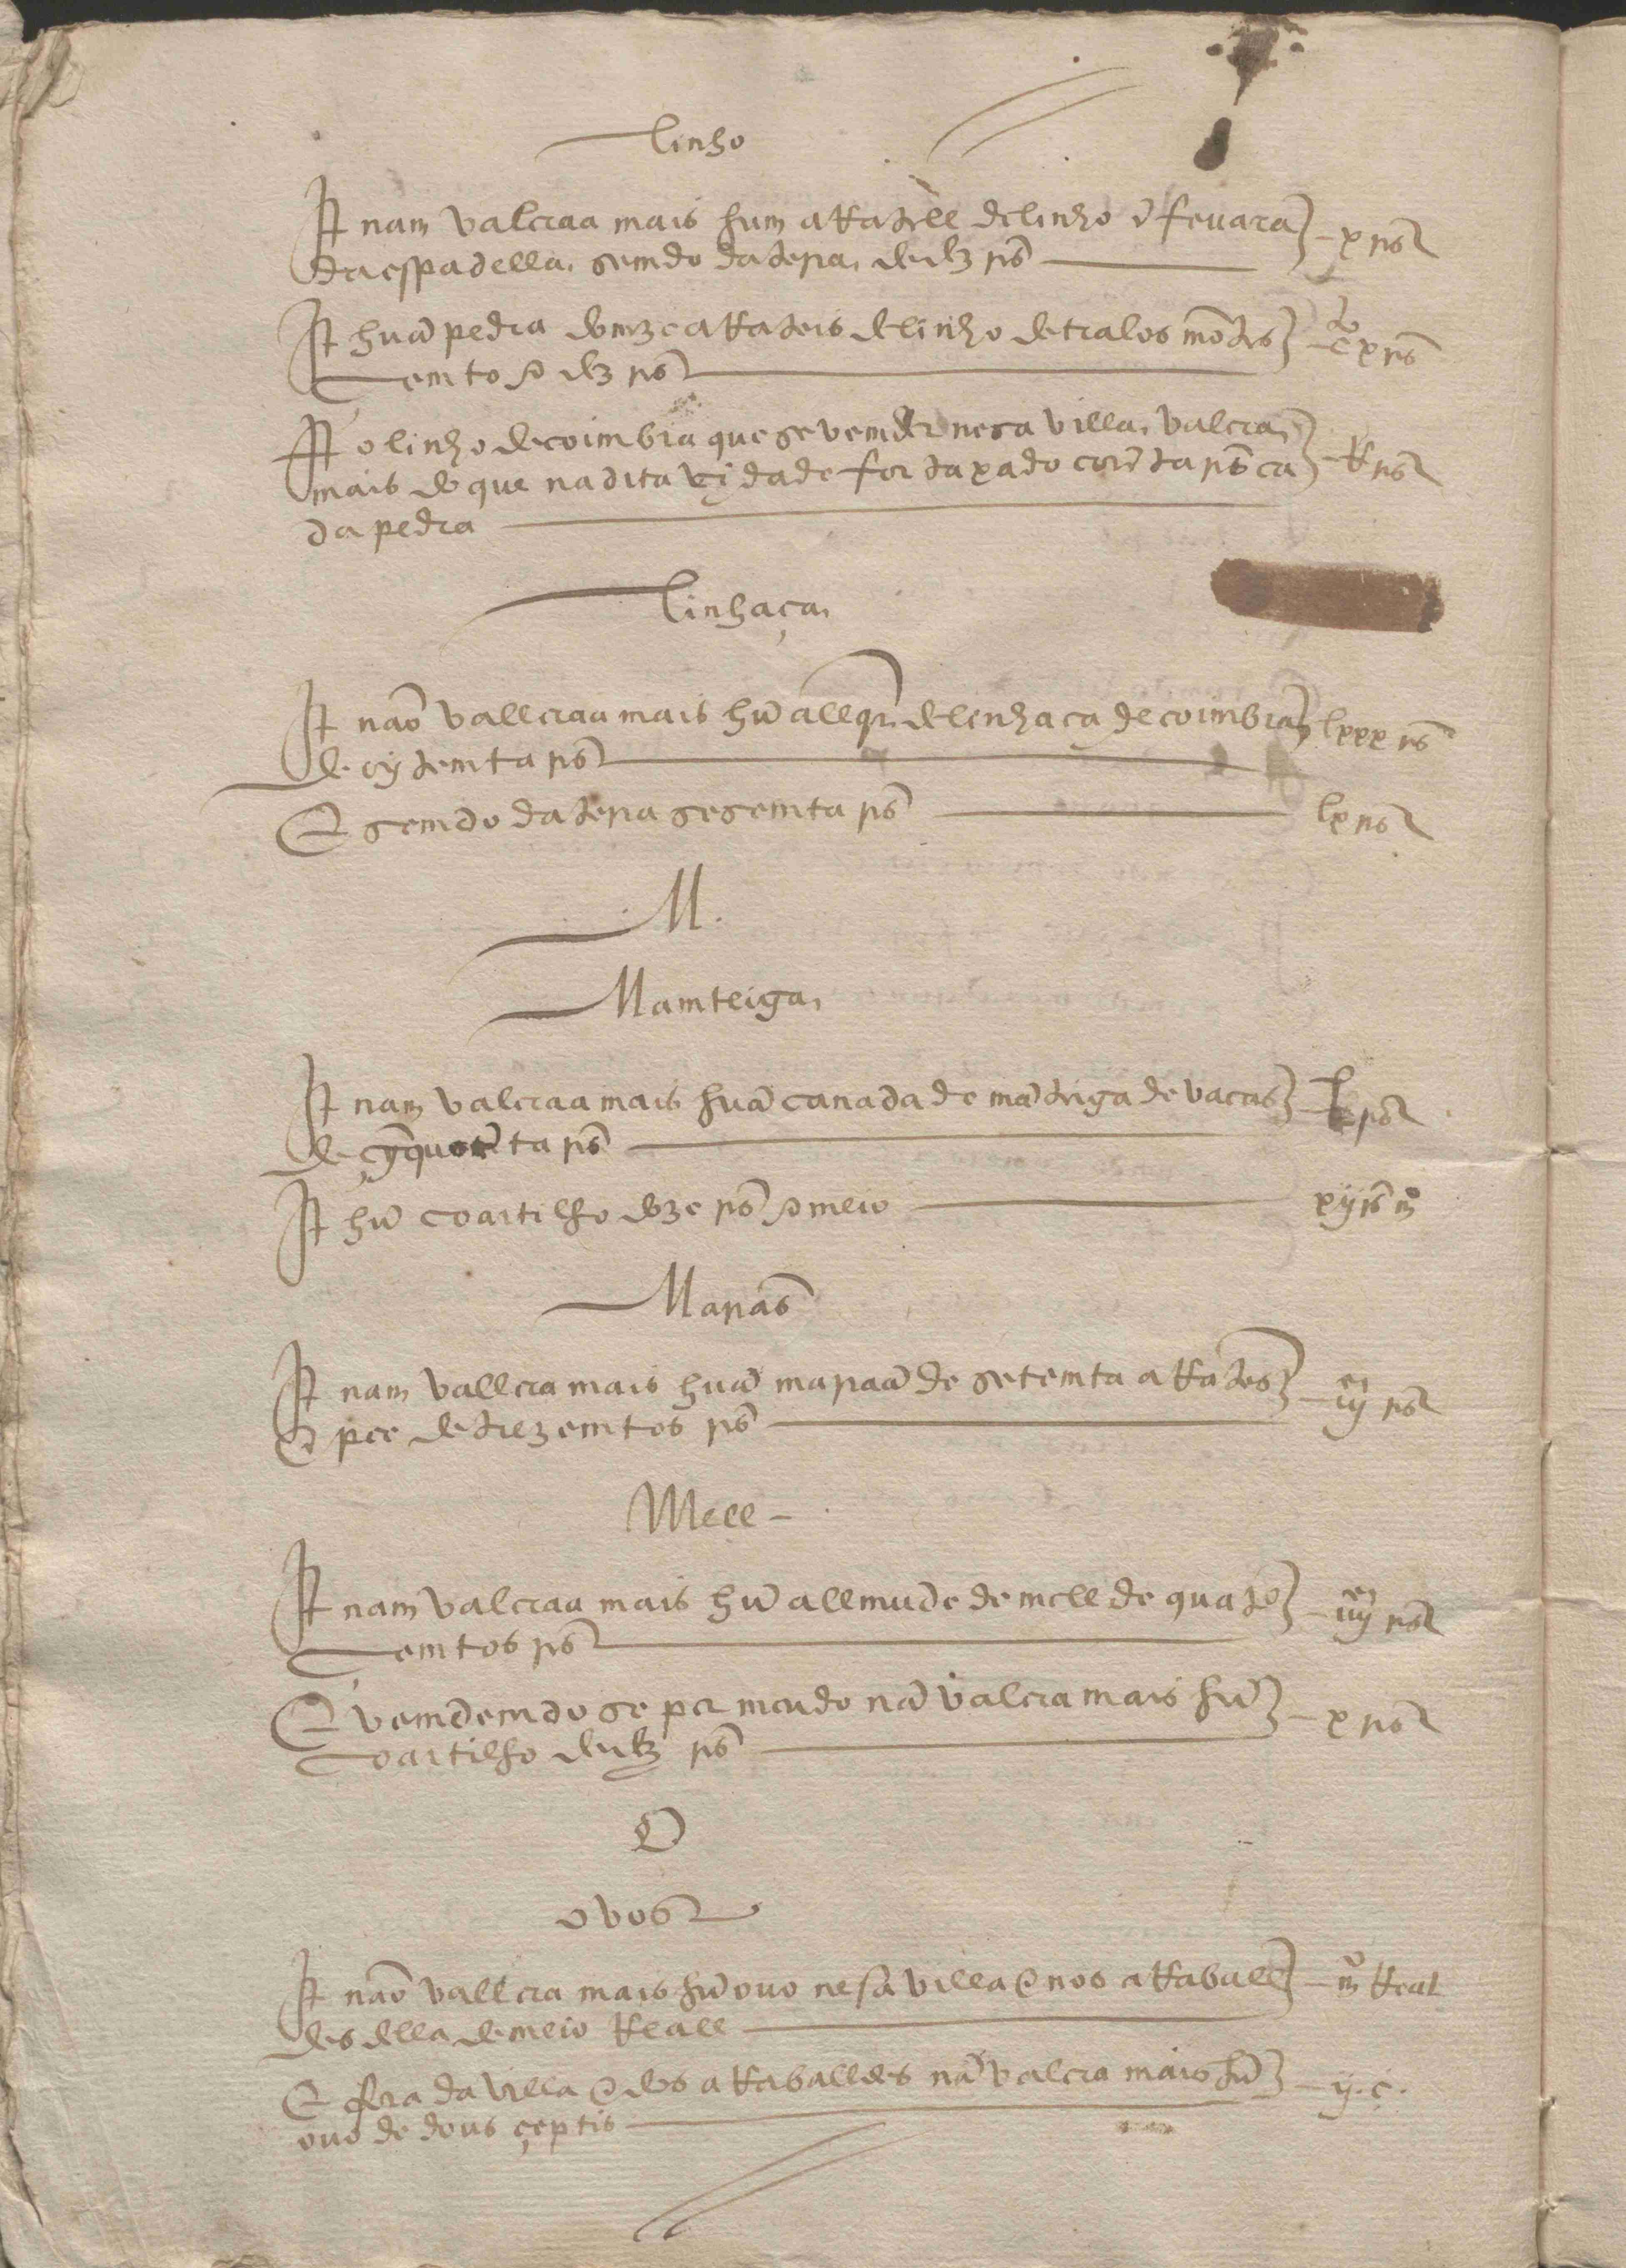 linho
It nam valeraa mais hum aRatell de linho e fevara
da espadella, semdo da terra, de dez rs̃ — x rs̃
It huã pedra domze aRateis de linho de tralos mõtes
cemto e dez rs̃ — cx rs̃
It o linho de coimbra que se vemder nesa villa, valera,
mais do que na dita cidade for taxado corẽta rs̃ ca — R rs̃
da pedra
linhaça,
It não valleraa mais hũ allqr̃e de linhaça de coimbra
de oytemta rs̃ — lxxx rs̃
E semdo da terra sesemta rs̃ — lx rs̃
M.
Mamteiga,
It nam valeraa mais huã canada de mãteiga de vacas
de çỹquoẽta rs̃ — L rs̃
It hũ coartilho doze rs̃ e meio — xij rs̃ mº
Marrãs
It nam vallera mais huã marraã de setemta aRates
e pee de trezemtos rs̃ — iijᶜ rs̃
Mell —
It nam valeraa mais hũ allmude de mell de quatro
cemtos rs̃ — iiijᶜ rs̃
E vemdemdo se per meudo nã valera mais hũ
coartilho de dez rs̃ — x rs̃
O
ovos
It não vallera mais hũ ovo nesa villa e nos aRaball
des della de meio Reall — mº Real
E fora da villa e dos aRaballdes nã valera mais hũ
ovo de dous çeptis — ij. ç.